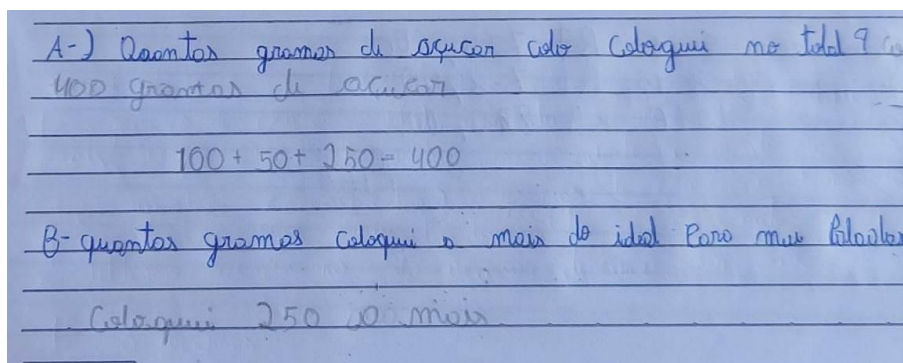 A-) Quantos gramas de açucar coloquei no total?
400 gramas de açucar
100 + 50 + 250 = 400
B- quantos gramas coloquei a mais do ideal Para meu
Coloquei 250 a mais